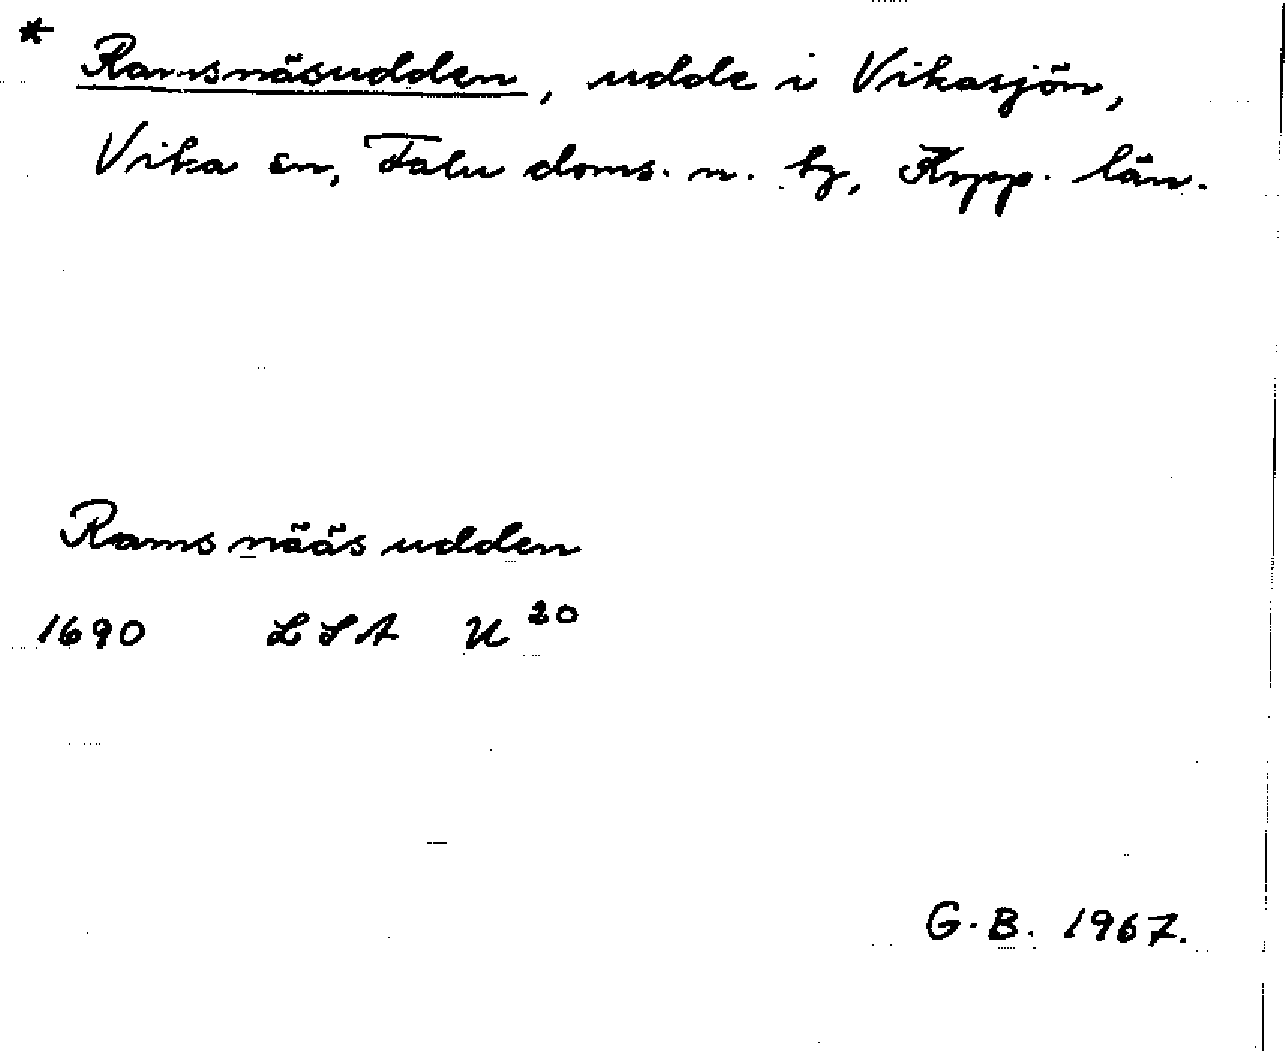 * Ramsnäsudden, udde i Vikasjön,
Vika sn, Falu doms. n. tg, Kopp. län.
Ramsnääsudden
1690 LSA U 20
G.B. 1967.